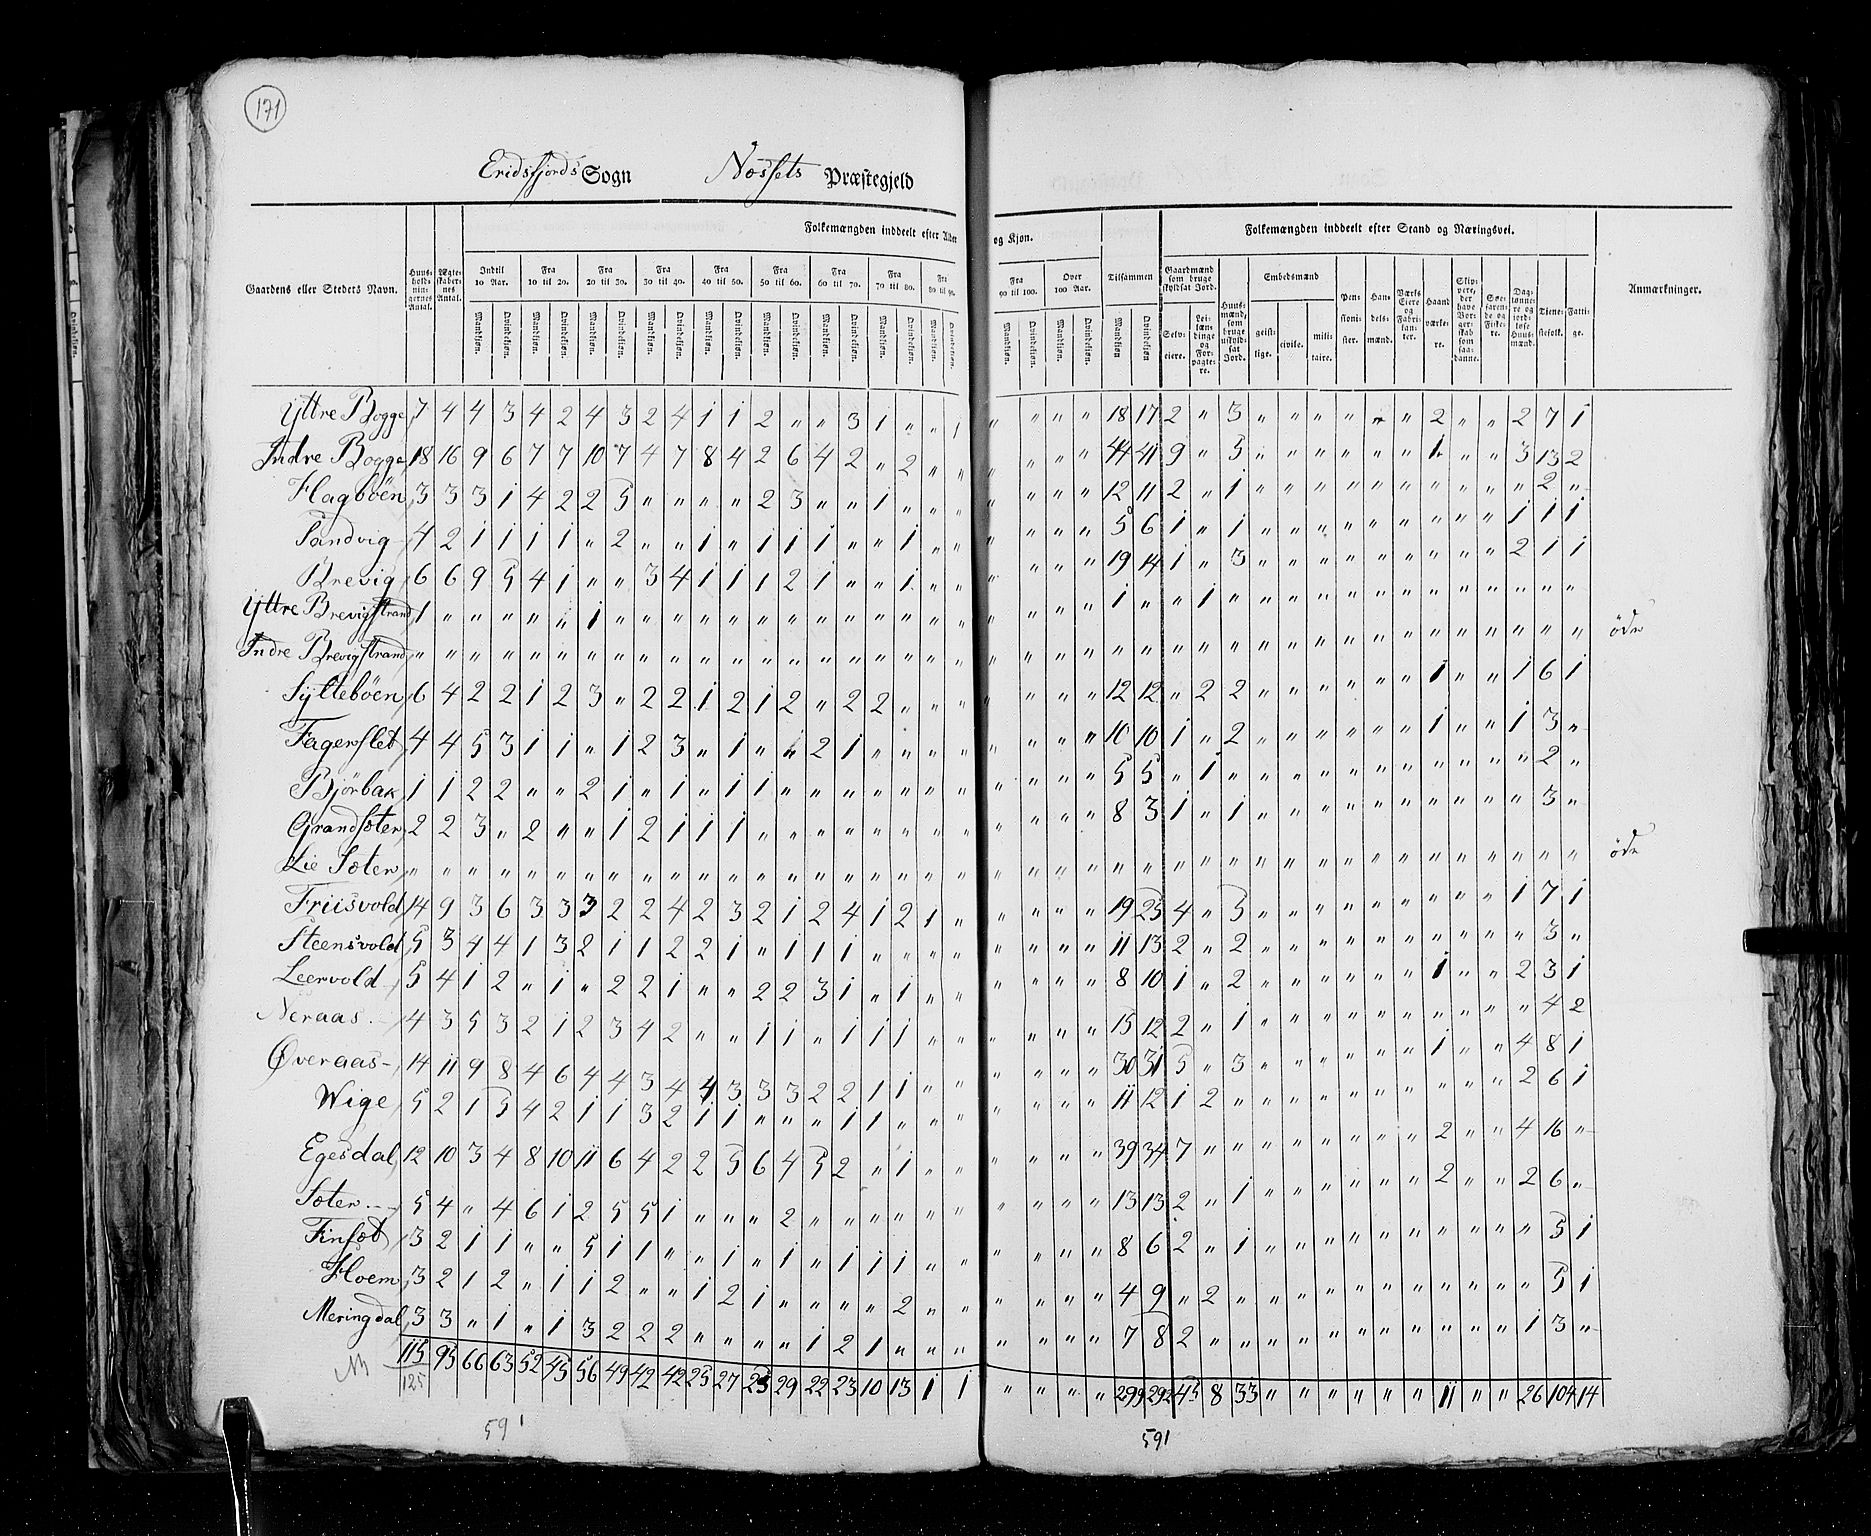 171
Eridsfjords Sogn Nossets Præstegjeld
Folkemængden inddeelt efter Alder og Kjøn. Folkemængden inddeelt efter Stand og Næringsvei.
Gaardens eller Steders Navn. Huusholdningernes Antal. Ægteskabernes Antal. Indtil 10 Aar. Fra 10 til 20. Fra 20 til 30. Fra 30 til 40. Fra 40 til 50. Fra 50 til 60. Fra 60 til 70. Fra 70 til 80. Fra 80 til 90. Fra 90 til 100. Over 100 Aar. Tilsammen Gaardmænd som bruge skyldsat Jord. Huusmænd, som bruge uskyldsat Jord. Embedsmænd Pensionister. Handelsmænd. Værks Eiere og Fabrikanter. Haandværkere. Skippere, der have Borgerskab som saadanne. Søefarende og Fiskere. Dagslønnere og jordløse Huusmænd. Tjenestefolk. Fattige. Anmærkninger.
Mandkjøn. Qvindekjøn. Mandkjøn. Qvindekjøn. Mandkjøn. Qvindekjøn. Mandkjøn. Qvindekjøn. Mandkjøn. Qvindekjøn. Mandkjøn. Qvindekjøn. Mandkjøn. Qvindekjøn. Mandkjøn. Qvindekjøn. Mandkjøn. Qvindekjøn. Mandkjøn. Qvindekjøn. Mandkjøn. Qvindekjøn. Mandkjøn Qvindekjøn Selveiere. Leilændinge og Forpagtere. geistlige. civile. militaire.
Yttre Bogge 7 4 4 3 4 2 4 3 2 4 1 1 2 " " 3 1 " " 1 " " " " 18 17 2 " 3 " " " " " " 2 " " 2 7 1
Indre Bogge 18 16 9 6 7 7 10 7 4 7 8 4 2 6 4 2 " 2 " " " " " " 44 41 9 " 5 " " " " " " 1 " " 3 13 2
Flagböen 3 3 3 1 4 2 2 5 " " " " 2 3 " " 1 " " " " " " " 12 11 2 " 1 " " " " " " " " " " 2 "
Sandvig 4 2 1 1 1 1 " 2 " " 1 " 1 1 1 " " 1 " " " " " " 5 6 1 " 1 " " " " " " " " " 1 1 1
Brevig 6 6 9 5 4 1 " " 3 4 1 1 1 2 1 " " 1 " " " " " " 19 14 1 " 3 " " " " " " " " " 2 1 1
Yttre Brevigstrand 1 " " " " " 1 " " " " " " " " " " " " " " " " " 1 " " 1 " " " " " " " " " " " " "
Indre Brevigstrand " " " " " " " " " " " " " " " " " " " " " " " " " " " " " " " " " " " " " " " " " öde
Sylteböen 6 4 2 2 1 2 3 " 2 2 1 2 1 2 " 2 2 " " " " " " " 12 12 " 2 2 " " " " " " 1 " " 1 6 1
Fagerslet 4 4 5 3 1 1 " 1 2 3 " 1 " " 2 1 " " " " " " " " 10 10 1 " 2 " " " " " " 1 " " 1 3 "
Bjørbak 1 1 2 2 " " 2 1 " 1 " 1 1 " " " " " " " " " " " 5 5 " 1 " " " " " " " " " " " 2 "
Grandsæter 2 2 3 " 2 " " 1 2 1 1 1 " " " " " " " " " " " " 8 3 1 " 1 " " " " " " " " " " 3 "
Lie Sæter " " " " " " " " " " " " " " " " " " " " " " " " " " " " " " " " " " " " " " " " " öde
Friisvold 14 9 3 6 3 3 3 2 2 4 2 3 2 1 2 4 1 2 1 " " " " " 19 25 4 " 5 " " " " " " " " " 1 7 1
Steensvold 5 3 4 4 1 3 2 1 1 2 2 1 " 1 1 1 " " " " " " " " 11 13 2 " 2 " " " " " " " " " " 3 "
Leervold 5 4 1 2 " 1 " 2 2 1 " " 2 2 3 1 " 1 " " " " " " 8 10 1 " 2 " " " " " " 1 " " 2 3 1
Neraas 4 3 5 3 2 1 2 3 4 2 " " 1 1 " 1 1 1 " " " " " " 15 12 2 " 1 " " " " " " " " " " 4 2
Øveraas 14 11 9 8 4 6 4 4 3 4 4 3 3 3 2 2 1 1 " " " " " " 30 31 5 " 3 " " " " " " 1 " " 4 8 1
Wige 5 2 1 5 4 2 1 1 3 2 1 1 " " " 1 1 " " " " " " " 11 12 1 2 " " " " " " " " " " 2 6 1
Egesdal 12 10 3 4 8 10 11 6 4 2 2 5 6 4 5 2 " 1 " " " " " " 39 34 7 " " " " " " " " 2 " " 4 16 "
Sæter 5 4 " 4 6 1 2 5 5 1 " " " 2 " " " " " " " " " " 13 13 2 " 1 " " " " " " 2 " " 2 6 "
Finsæt 3 2 1 1 " " 5 1 1 " " 1 " 1 " 1 1 1 " " " " " " 8 6 2 " 1 " " " " " " " " " " 5 1
Hoem 3 2 1 2 " 1 1 2 " " 1 2 1 " " " " 2 " " " " " " 4 9 " 2 " " " " " " " " " " " 5 1
Meringdal 3 3 " 1 " 1 3 2 2 2 " " " " 1 2 1 " " " " " " " 7 8 2 " " " " " " " " " " " 1 3 "
115 95 66 63 52 45 56 49 42 42 25 27 25 29 22 23 10 13 1 1 " " " " 299 292 45 8 33 " " " " " " 11 " " 26 104 14
125
591 591